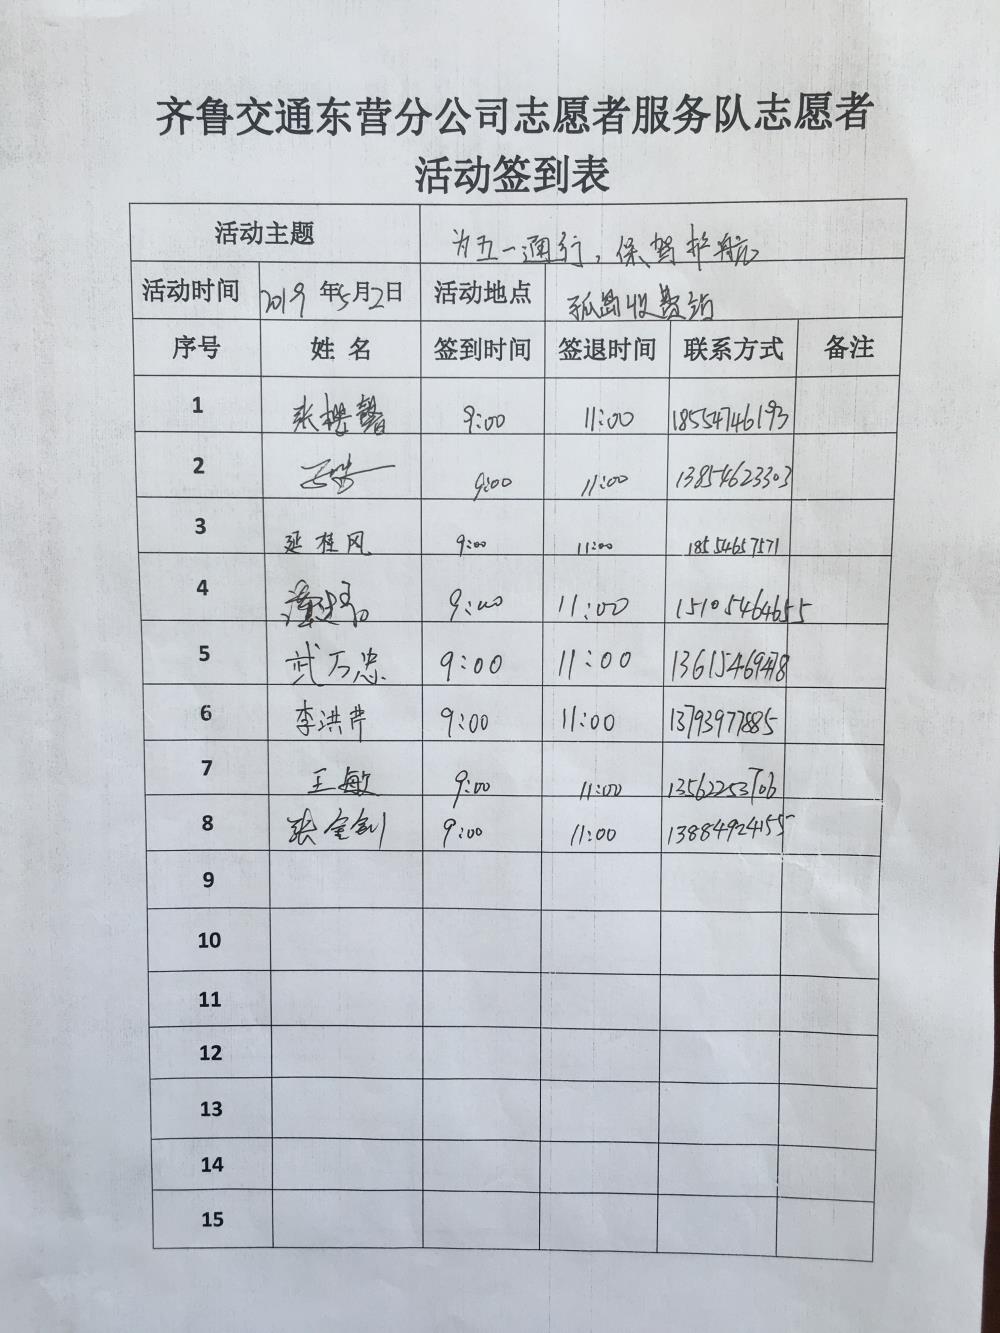 齐鲁交通东营分公司志愿者服务队志愿者
活动签到表
活动主题 为五一通行，保驾护航
活动时间 2019年5月2日 活动地点 孤岛收费站
序号 姓名 签到时间 签退时间 联系方式 备注
1 张樱馨 9:00 11:00 18554746193
2 9:00 11:00 13854623303
3 延桂风 9:00 11:00 18554657571
4 9:00 11:00 15105464655
5 武万忠 9:00 11:00 13615469478
6 李洪芹 9:00 11:00 13793977885
7 王敏 9:00 11:00 13562253706
8 张宝钊 9:00 11:00 13884924155
9
10
11
12
13
14
15